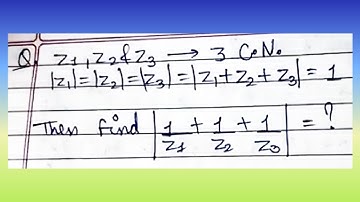 Q. z₁, z₂ & z₃ → 3 C.No.
|z₁| = |z₂| = |z₃| = |z₁ + z₂ + z₃| = 1
Then find |1/z₁ + 1/z₂ + 1/z₃| = ?